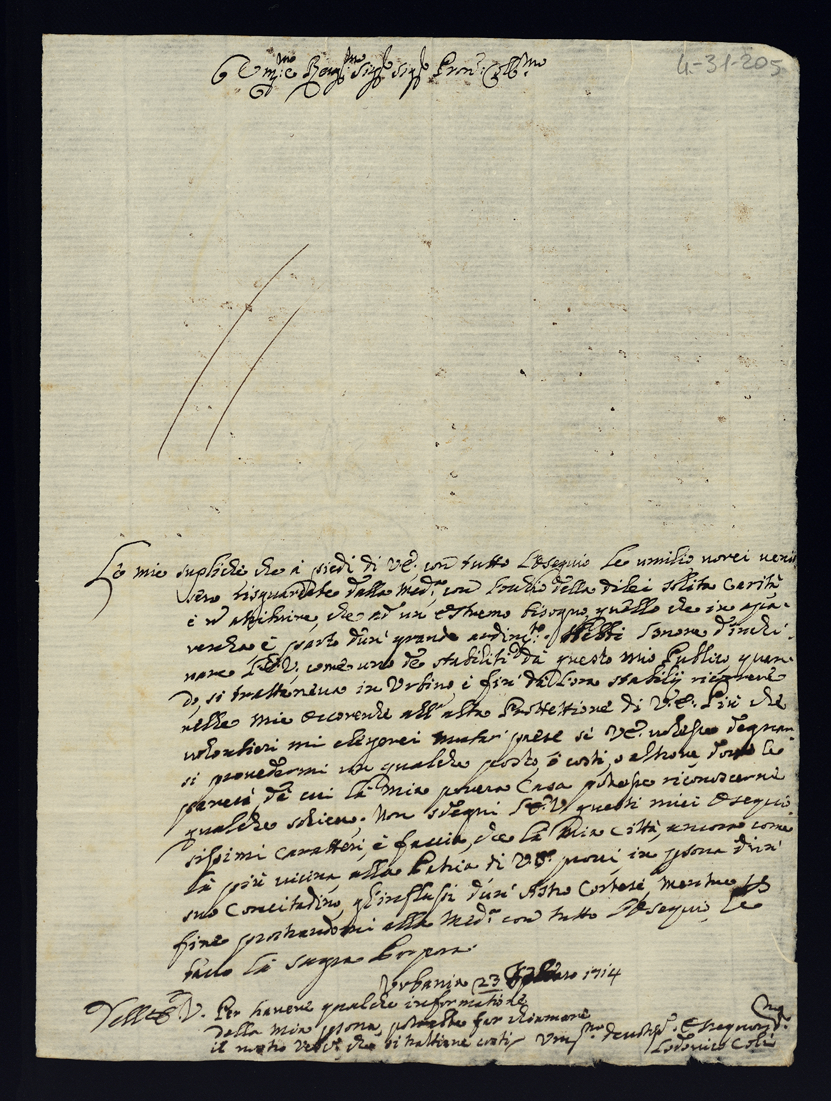 4-31-205
Em.mo e Reu.mo Sig.re Sig.re Pron.e Col.mo
Le mie supliche che a piedi di V.E. con tutto l'ossequio le umilio vorei venis
sero risguardate dalla med.a con l'ochio della di lei solita Carità
e attribuire, che ad un estremo bisogno, quello che in apa-
renza è parto d'un grande ardim.to. Hebbi l'onore d'inchi-
nare l'E.V. come uno de stabiliti da questo mio Publico, quan-
do, si tratteneva in Urbino e fin d'allora stabilij ricorrere
nelle mie occorenze all'alta Protettione di V.E. Più che
volontieri mi eleggerei mutar paese se V.E. volesse degnar
si provedermi un qualche posto, ò costì, o altrove dove le
paresse da cui la mia povera Casa potesse riconoscerne
qualche solievo. Non sdegni l'E.V. questi miei ossequio
sissimi Caratteri, e faccia, che la mia Città, ancora come
la più vicina alla Patria di V.E. provi in p̱sona d'un
suo Concitadino gl'influssi d'un Astro Cortese, mentre
fine prostrandomi alla med.a con tutto l'ossequio, le
bacio la sagra Porpora.
Urbania 23 Febraro 1714
Dell'E.V. Per havere qualche informatione
della mia p̱sona, potrebbe far chiamare
il nostro Vesc.o che si trattiene costì
Umil.mo deuotis.o Ossequios.
Lodovico Coli